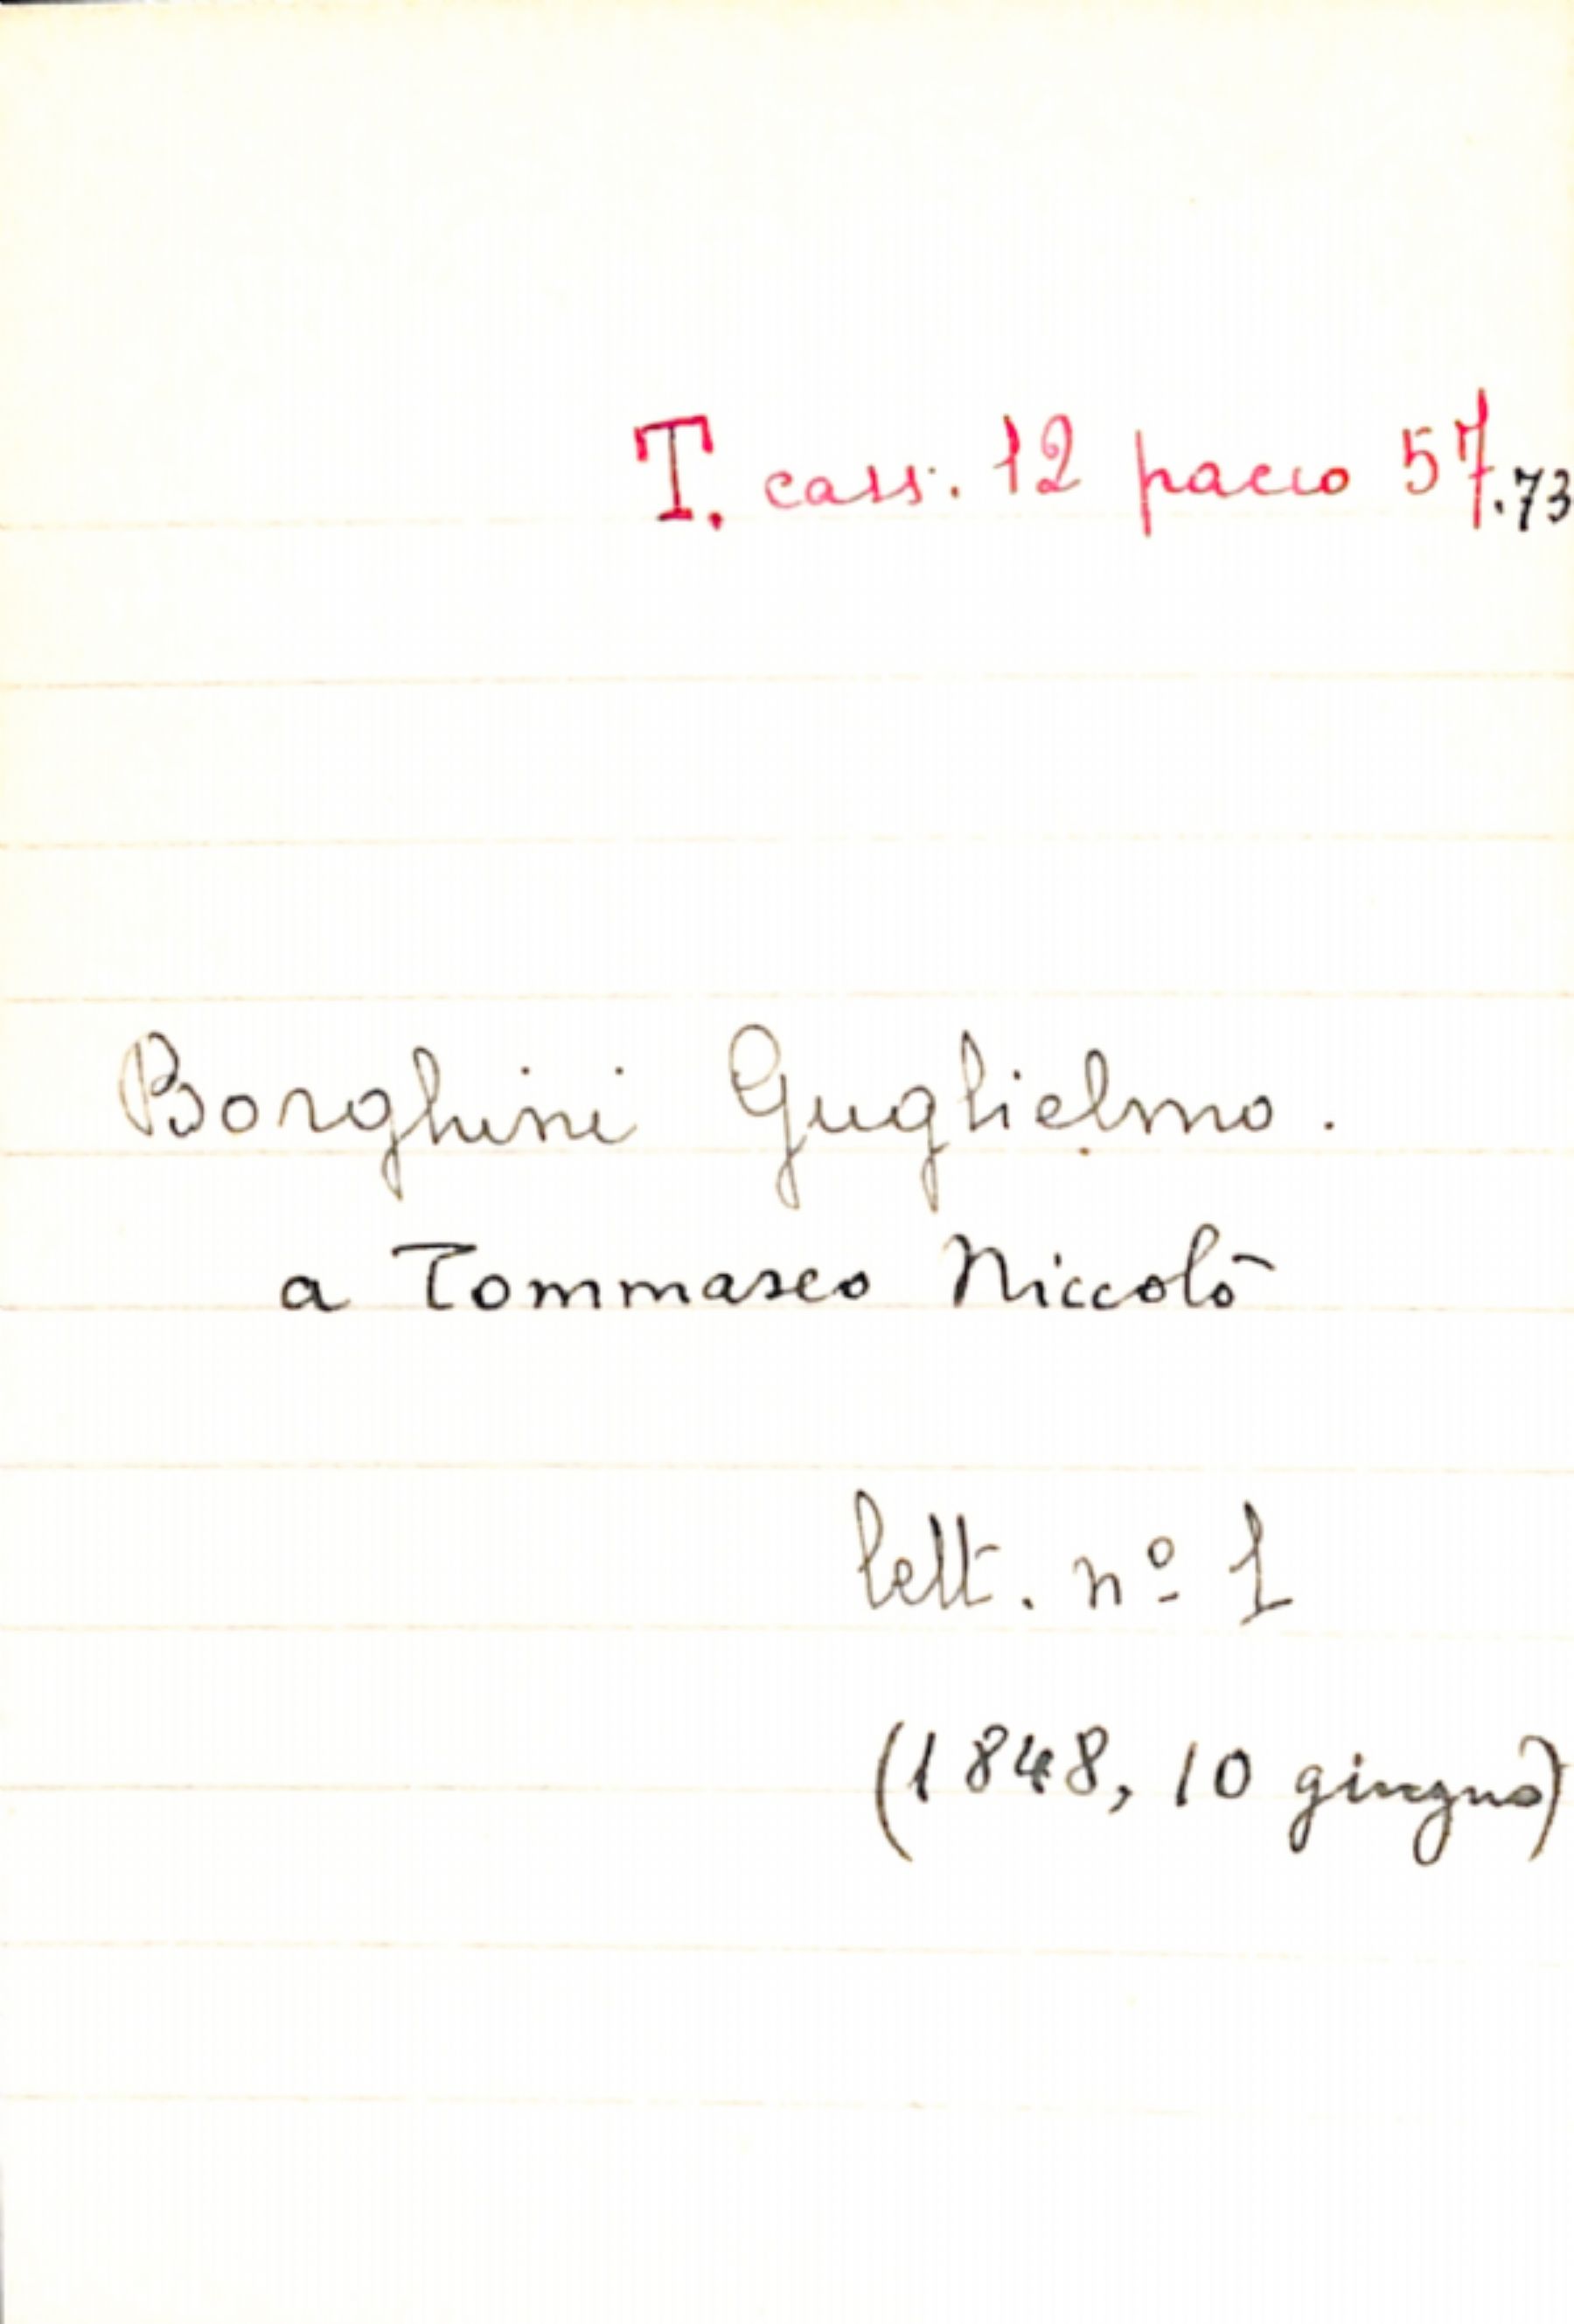 T. cass. 12 pacco 57.73
Borghini Guglielmo.
a Tommaseo Niccolò
lett. nº 1
(1848, 10 giugno)